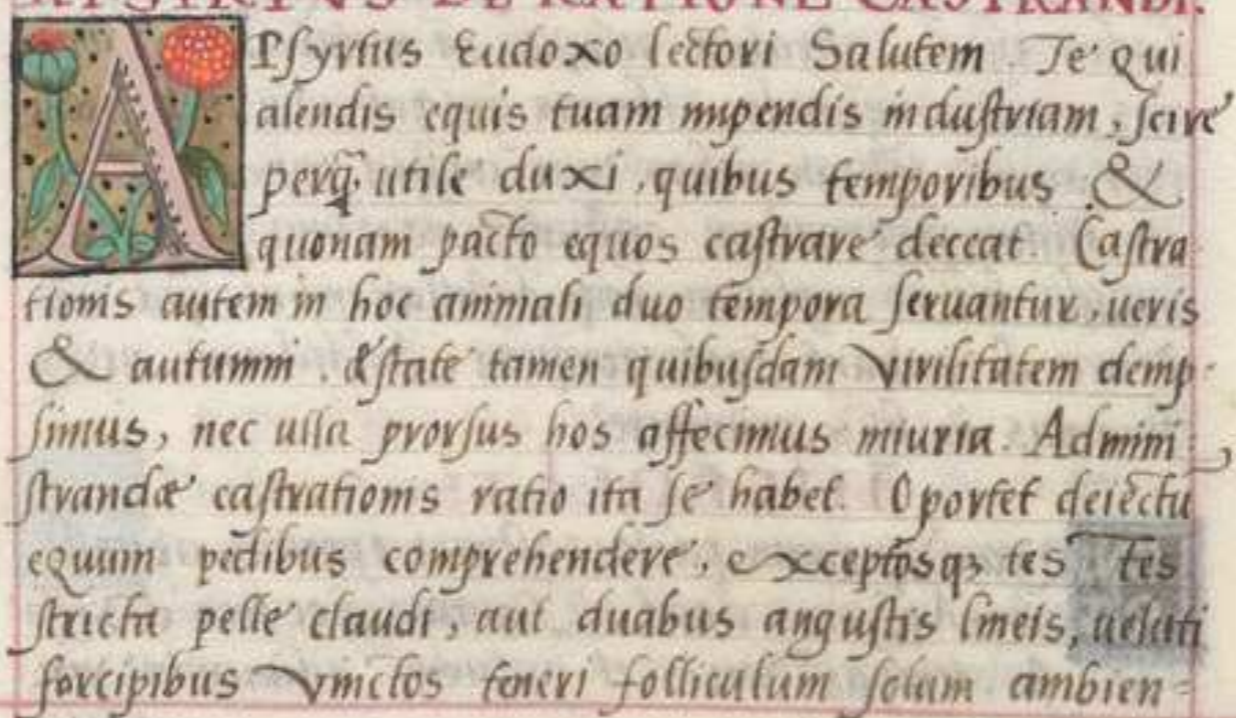 APSYRTVS DE RATIONE CASTRANDI.
APſyrtus Eudoxo lectori Salutem. Te qui
alendis equis tuam impendis induſtriam, ſcire
perq̃ utile duxi, quibus temporibus &
quonam pacto equos caſtrare deceat. Caſtra-
tionis autem in hoc animali duo tempora ſeruantur, ueris
& autumni. Æſtate tamen quibuſdam virilitatem demp-
ſimus, nec ulla prorſus hos affecimus iniuria. Admini-
ſtrandæ caſtrationis ratio ita ſe habet. Oportet deiectū
equum pedibus comprehendere, exceptosqꝫ tes Tes
ſtricta pelle claudi, aut duabus anguſtis lineis, ueluti
forcipibus vinctos teneri folliculum ſolum ambien-